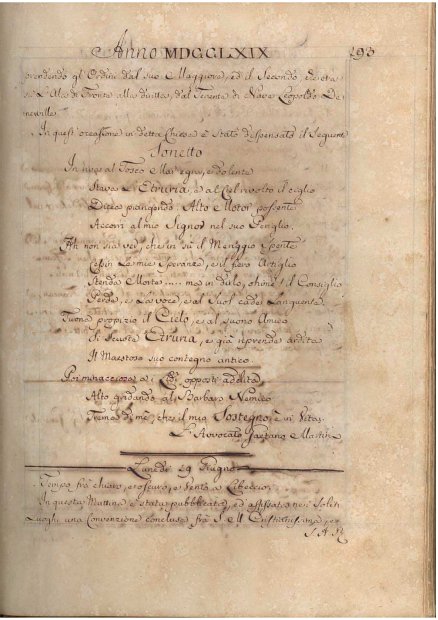 Anno MDCCLXIX
193
prendendo gl'Ordini dal suo Maggiore, ed il Secondo, che sta-
di Fronte alla diritta, dal Tenente di Nave Leopoldo De-
neville
In quest'occasione in detta Chiesa è stato dispensato il Seguente
Sonetto
In riva al Tosco Mar egra, e dolente
Stava Etruria, e al Ciel rivolto il ciglio
Dicea piangendo: Alto Motor possente
Accorri al mio Signor nel suo Periglio,
Ah non sia ver, che in sù il Meriggio Spente
Le mie Speranze, e il fiero Artiglio
Stenda Morte.... mà in dirlo, ohimè! il Consiglio
Perde, e la voce, e al Suol cade Languente.
Tuona propizio il Cielo, e al suono Amico
Si scuote Etruria, e già riprende ardita
Il Maestoso suo contegno antico.
Poi minacciosa ai Lidi opposti addita
Alto gridando al Barbaro Nemico
Trema di me, che il mio Sostegno è in Vita.
L'Avvocato Gaetano Martini
Lunedì 19 Giugno
Tempo frà chiaro, e oscuro, e Vento a Libeccio,
In questa Mattina è stata pubblicata, ed affissata nei Soliti
Luoghi una Convenzione conclusa frà S. M. Cristianissima, e
S. A. R.